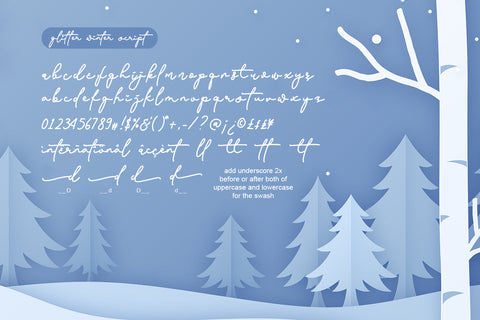 glitter winter script
abcdefghijklmnopqrstuvwxyz
abcdefghijklmnopqrstuvwxyz
0123456789#!$%&()*+,-/?@¡¿©£¢¥
international áccent ll tt ff tt
d d d d
__D __d D__ d__
add underscore 2x
before or after both of
uppercase and lowercase
for the swash